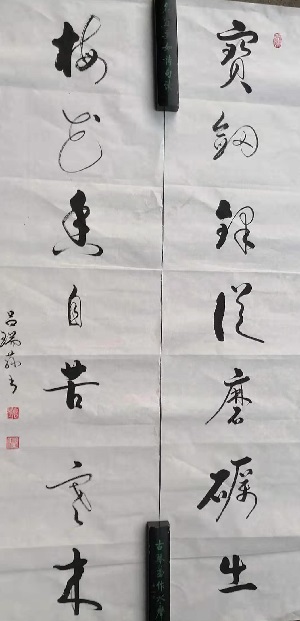 寶劍鋒從磨礪出
梅花香自苦寒来
吕瑞书